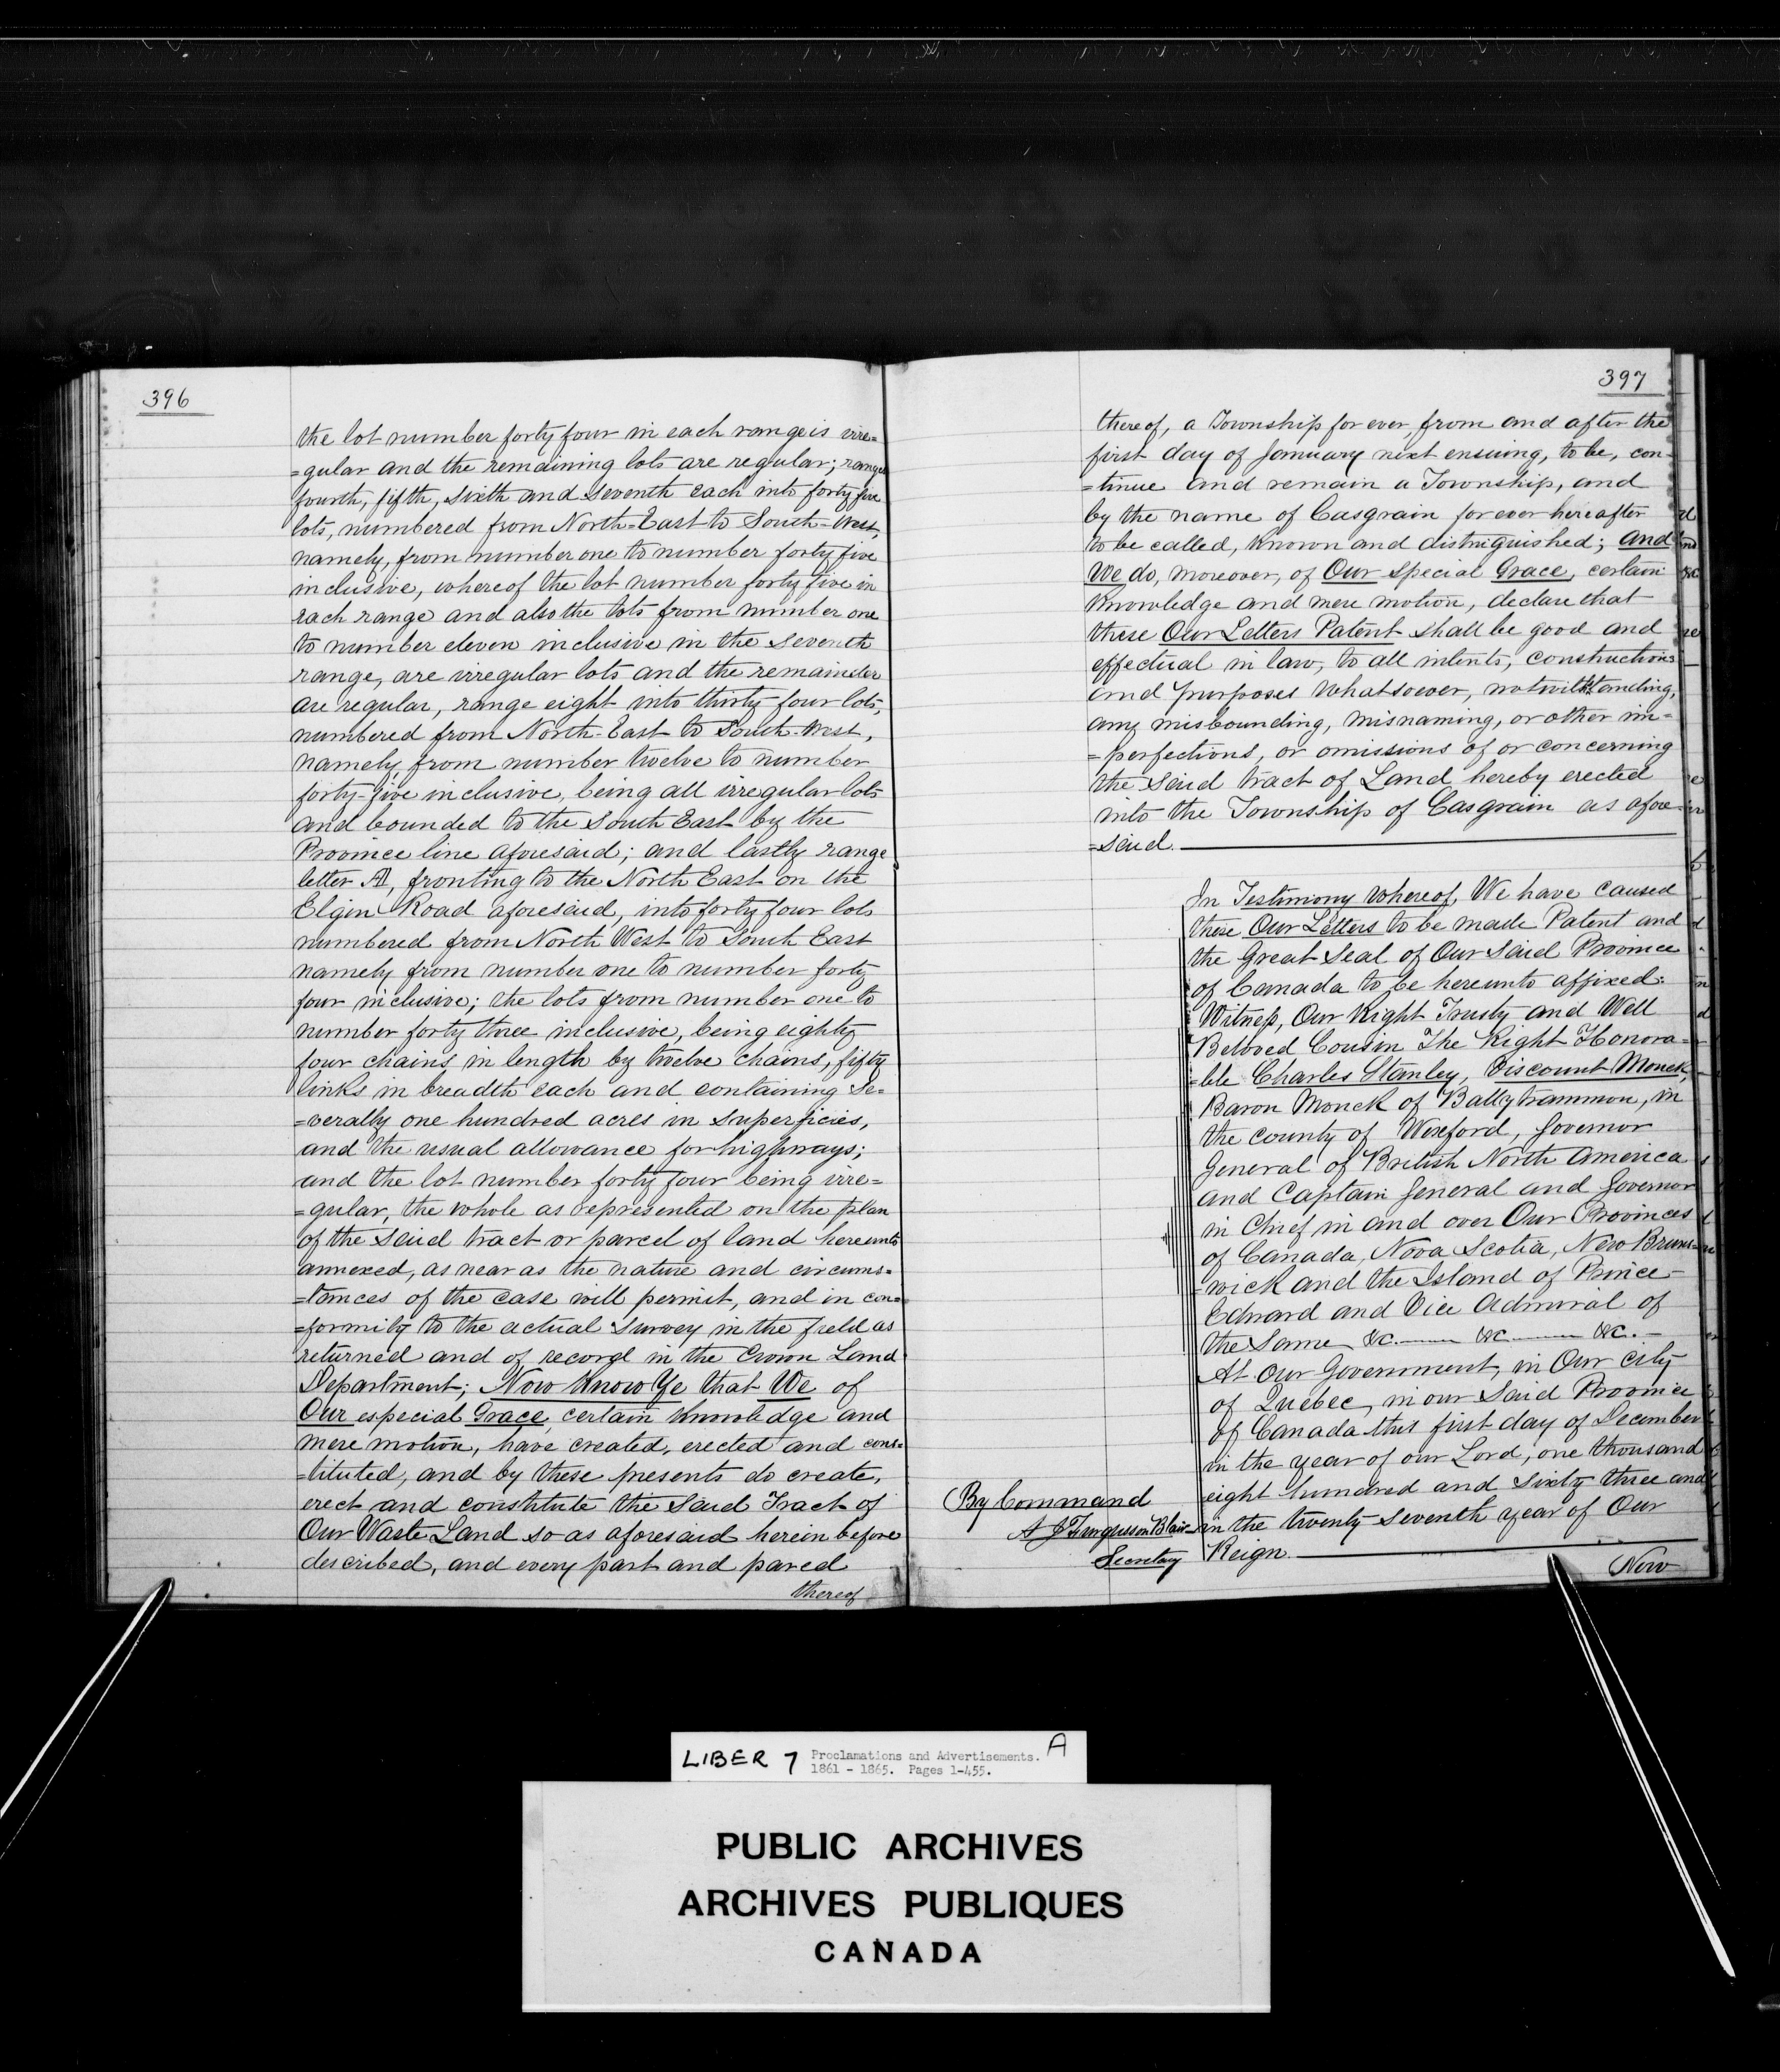 396
the lot number forty four in each range is irre=
=gular and the remaining lots are regular; range
fourth, fifth, sixth and seventh each into forty five
lots, numbered from North=East to South=West,
namely, from number one to number forty five
inclusive, whereof the lot number forty five in
each range and also the lots from number one
to number eleven inclusive in the seventh
range, are irregular lots and the remainder
are regular, range eight into thirty four lots,
numbered from North-East to South-West,
namely from number twelve to number
forty-five inclusive, being all irregular lots
and bounded to the South East by the
Province line aforesaid; and lastly range
letter A, fronting to the North East on the
Elgin Road aforesaid, into forty four lots
numbered from North West to South East
namely from number one to number forty
four inclusive; the lots from number one to
number forty three inclusive, being eighty
four chains in length by twelve chains, fifty
links in breadth each and containing se=
=verally one hundred acres in superficies,
and the usual allowance for highways;
and the lot number forty four being irre=
=gular, the whole as represented on the plan
of the said tract or parcel of land hereunto
annexed, as near as the nature and circums=
=tances of the case will permit, and in con=
=formity to the actual survey in the field as
returned and of record in the Crown Land
Department; Now Know Ye that We of
Our especial Grace, certain knowledge and
mere motion, have created, erected and cons=
=tituted, and by these presents do create,
erect and constitute the said Tract of
Our Waste Land so as aforesaid herein before
described, and every part and parcel
thereof
397
thereof, a Township for ever, from and after the
first day of January next ensuing, to be, con-
=tinue and remain a Township, and
by the name of Casgrain for ever hereafter
to be called, known and distinguished; And
We do, moreover, of Our special Grace, certain
knowledge and mere motion, declare that
these Our Letters Patent shall be good and
effectual in law, to all intents, constructions
and purposes whatsoever, notwithstanding,
any misbounding, misnaming, or other im=
=perfections, or omissions of or concerning
the said tract of Land hereby erected
into the Township of Casgrain as afore
=said.
In Testimony whereof, We have caused
these Our Letters to be made Patent and
the Great Seal of Our said Province
of Canada to be hereunto affixed:
Witness, Our Right Trusty and Well
Beloved Cousin The Right Honora=
=ble Charles Stanley, Viscount Monck,
Baron Monck of Ballytrammon, in
the county of Wexford, Governor
General of British North America
and Captain General and Governor
in Chief in and over Our Provinces
of Canada, Nova Scotia, New Bruns=
=wick and the Island of Prince
Edward and Vice Admiral of
the Same &c. — &c — &c. —
At Our Government, in Our City
of Quebec, in our Said Province
of Canada this first day of December
in the year of our Lord, one thousand
eight hundred and sixty three and
in the twenty seventh year of Our
Reign.
By Command
A J Fergusson Blair
Secretary
Now
LIBER 7 Proclamations and Advertisements. A
1861 - 1865. Pages 1-455.
PUBLIC ARCHIVES
ARCHIVES PUBLIQUES
CANADA